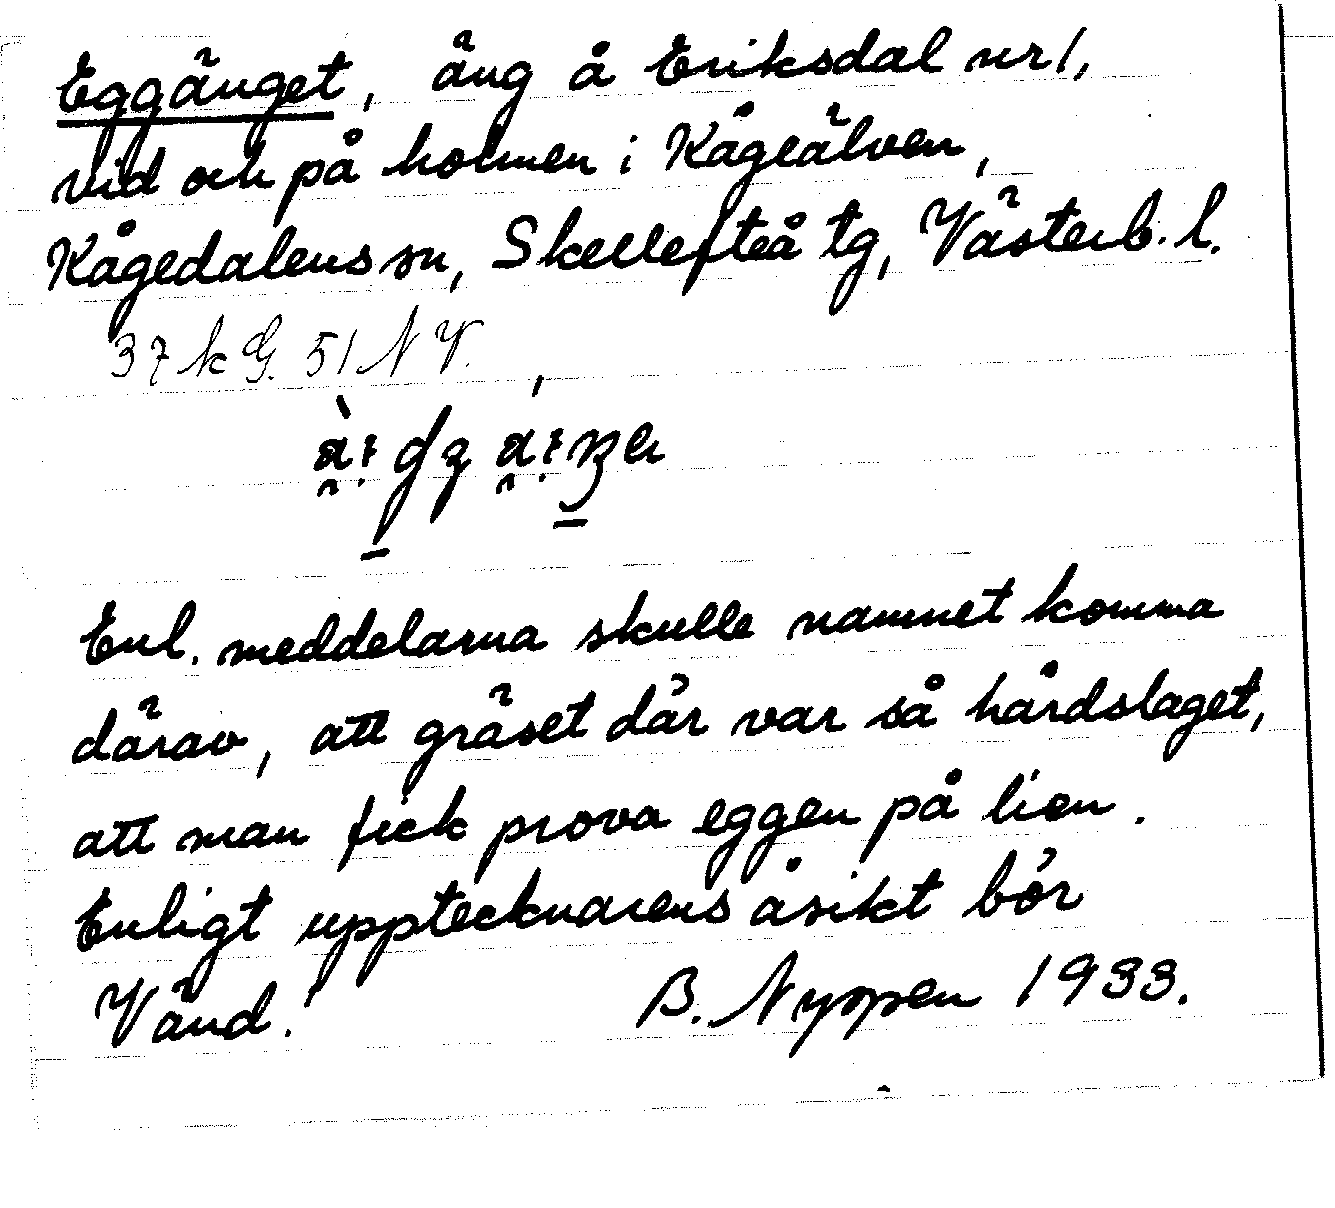 Eggänget, äng å Eriksdal nr 1,
vid och på holmen i Kågeälven,
Kågedalens sn, Skellefteå tg, Västerb. l.
37 k G. 51 N Y.
Enl. meddelarna skulle namnet komma
därav, att gräset där var så hårdslaget,
att man fick prova eggen på lien.
Enligt upptecknarens åsikt bör
Vänd! B. Nyppen 1933.